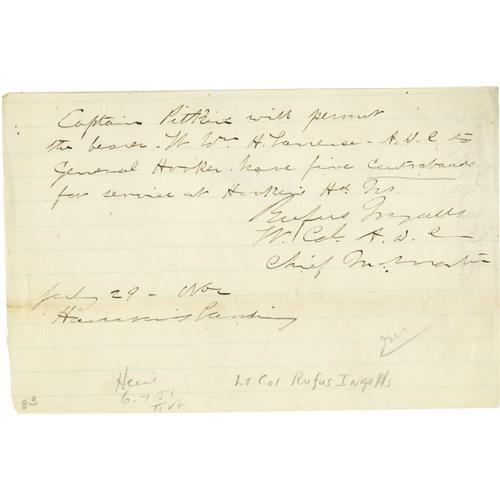 Captain Pitkin will permit
the bearer - Wm H. Lawrence - A.D.C to
General Hooker have five Contrabands
for service at Hooker's Hd Qrs.
Rufus Ingalls
Lt. Col. A.D.C
Chief
July 29 -
Harrison's Landing
Lt Col Rufus Ingalls
83